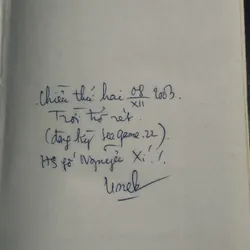 Chiều thứ hai 08/XII 2003.
Trời trở rét.
(đăng ký Sea game.22).
HS gố Nguyễn Xí.!.